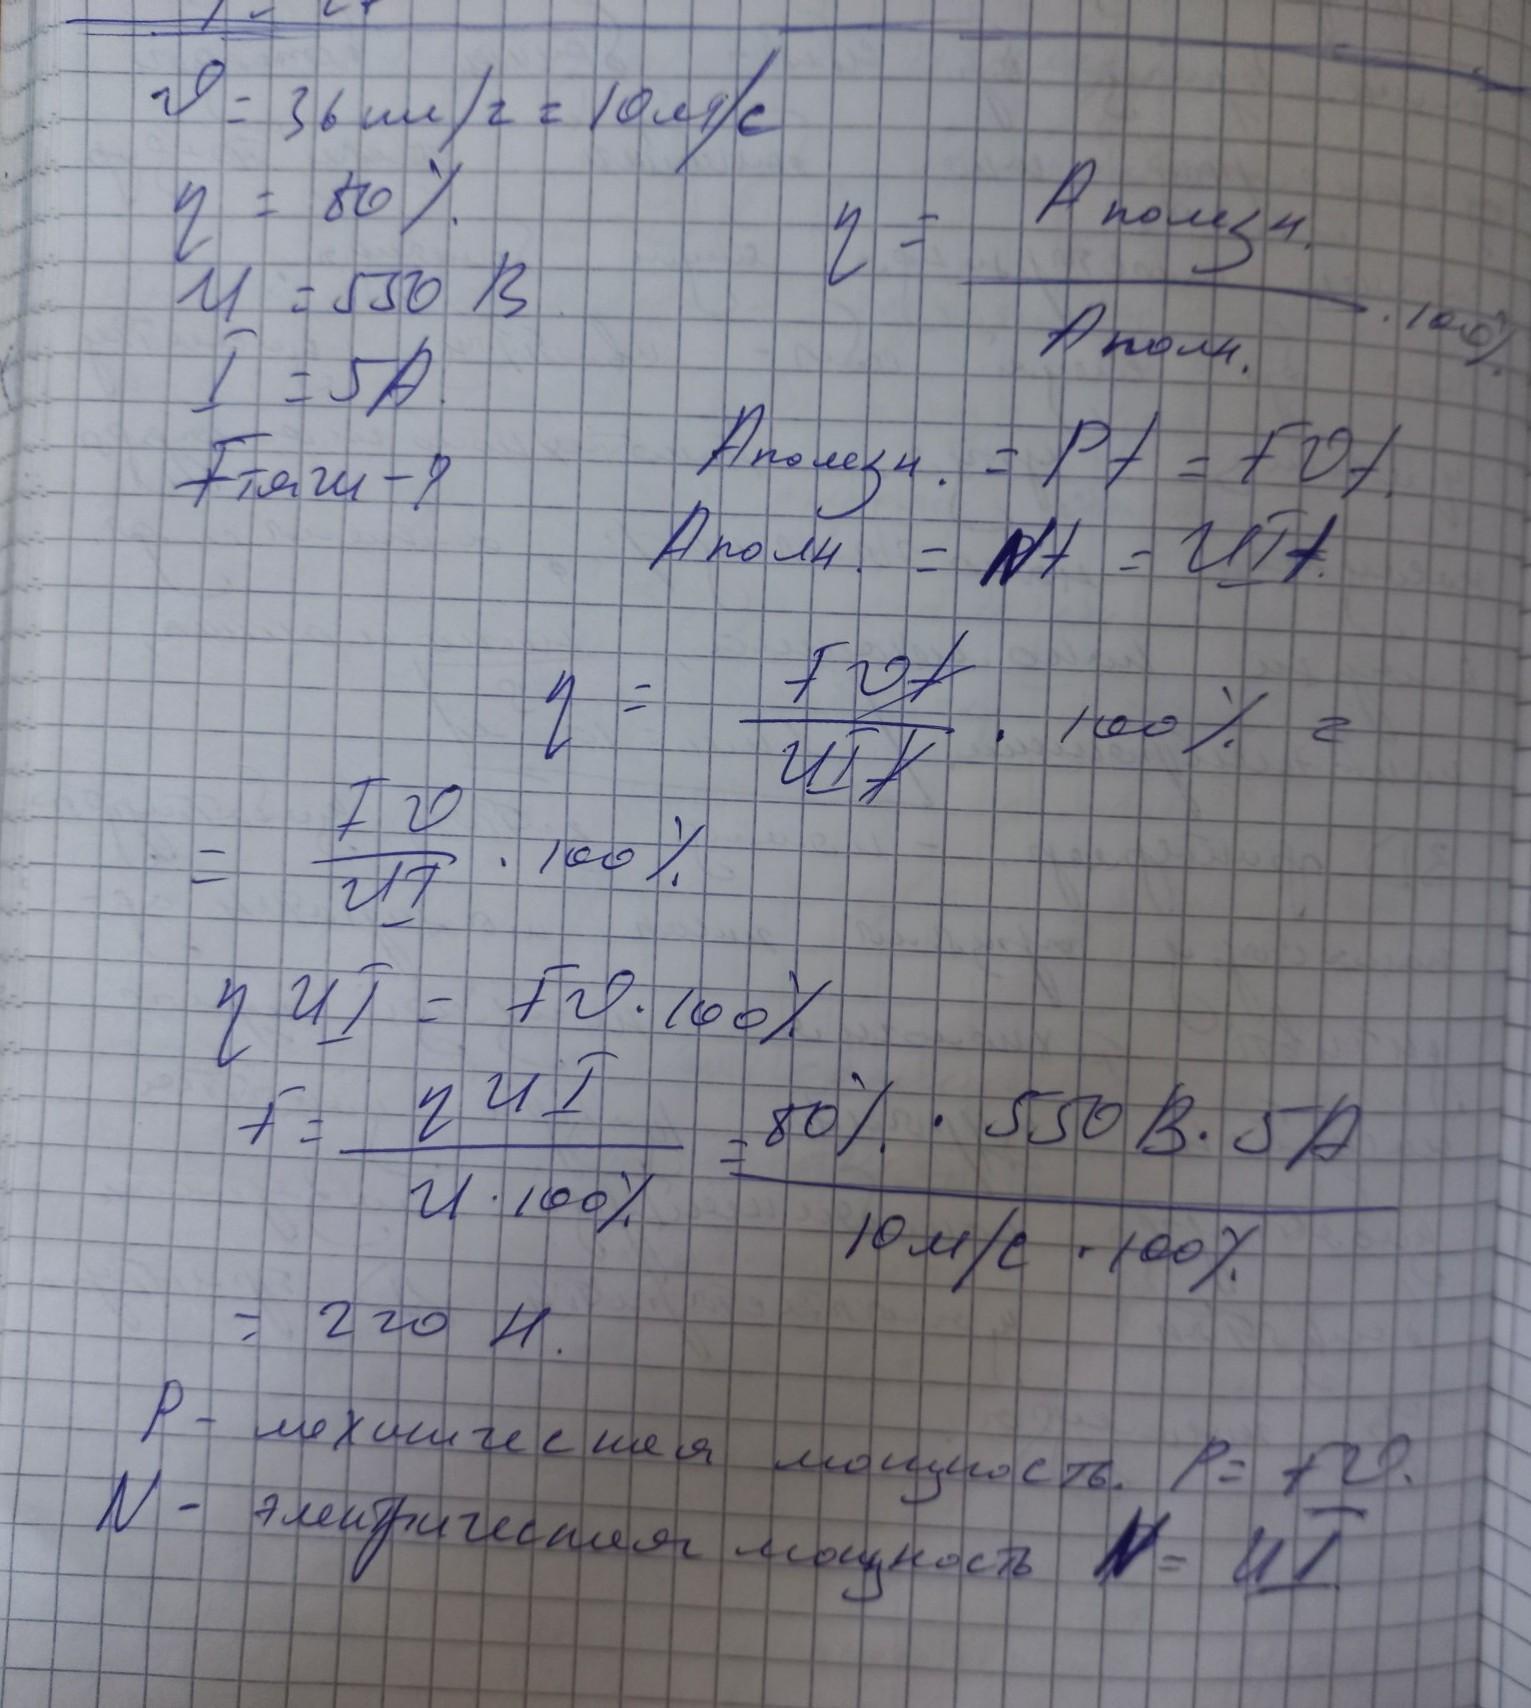 υ = 36 км/г = 10 м/с
η = 80 %.
U = 550 В
I = 5А.
Fтяги - ?
η = Аполезн. / Аполн. · 100%.
Аполезн. = Pt = Fυt.
Аполн. = Nt = UIt.
η = Fυt / UIt · 100 % =
= Fυ / UI · 100 %
η UI = Fυ · 100%
F = η UI / U · 100% = 80% · 550 В · 5А / 10 м/с · 100%
= 220 Н.
P - механическая мощность. P = Fυ.
N - электрическая мощность N = UI